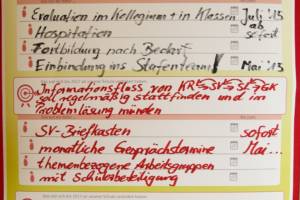 Evaluation im Kollegium + in Klassen Juli '13
Hospitation ab sofort
Fortbildung nach Bedarf
Einbindung ins Stufenteam! Mai '13
Informationsfluss von KR SV GK
soll regelmäßig stattfinden und in
Problemlösung münden
SV-Briefkasten sofort
monatliche Gesprächstermine Mai...
themenbezogene Arbeitsgruppen
mit Schülerbeteiligung